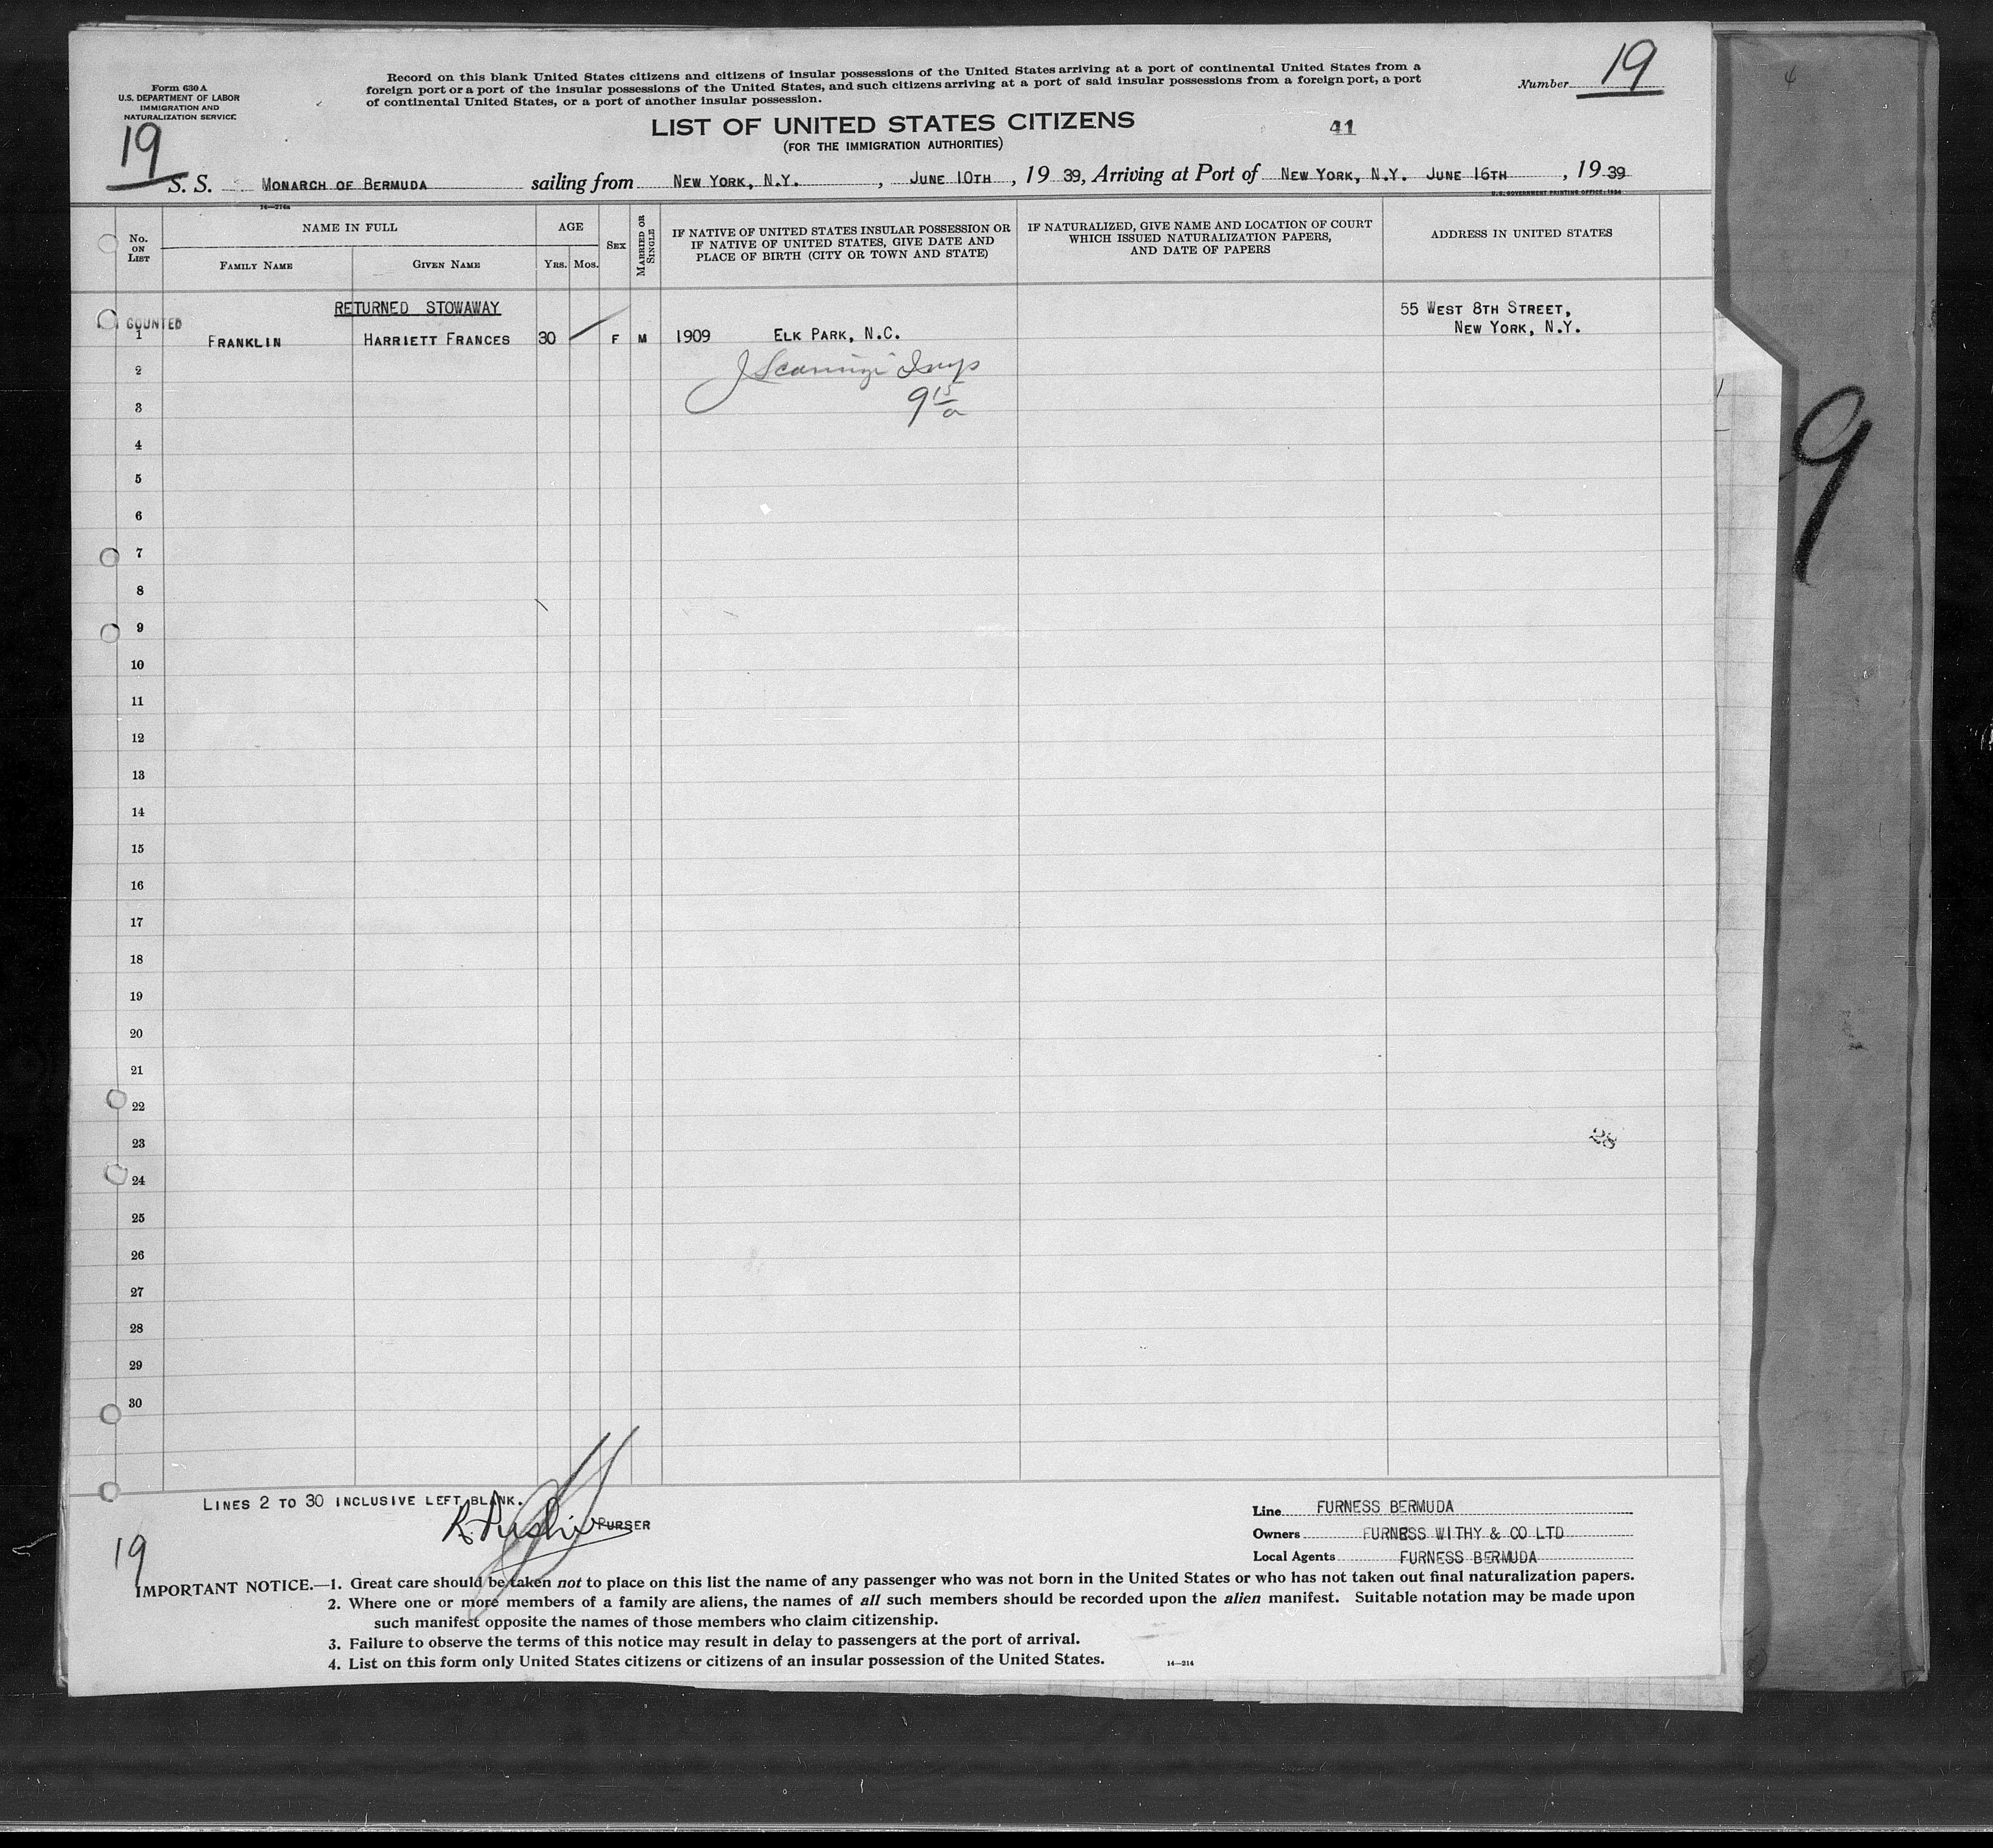 Form 630 A
U.S. DEPARTMENT OF LABOR
IMMIGRATION AND
NATURALIZATION SERVICE
Record on this blank United States citizens and citizens of insular possessions of the United States arriving at a port of continental United States from a
foreign port or a port of the insular possessions of the United States, and such citizens arriving at a port of said insular possessions from a foreign port, a port
of continental United States, or a port of another insular possession.
Number 19
LIST OF UNITED STATES CITIZENS
(FOR THE IMMIGRATION AUTHORITIES)
41
19
S. S. MONARCH OF BERMUDA sailing from NEW YORK, N.Y. , JUNE 10TH , 19 39, Arriving at Port of NEW YORK, N.Y. JUNE 16TH , 19 39
U.S. GOVERNMENT PRINTING OFFICE: 1934
14—214a
No. ON LIST
NAME IN FULL
FAMILY NAME
GIVEN NAME
AGE
YRS. MOS.
SEX
MARRIED OR SINGLE
IF NATIVE OF UNITED STATES INSULAR POSSESSION OR
IF NATIVE OF UNITED STATES, GIVE DATE AND
PLACE OF BIRTH (CITY OR TOWN AND STATE)
IF NATURALIZED, GIVE NAME AND LOCATION OF COURT
WHICH ISSUED NATURALIZATION PAPERS,
AND DATE OF PAPERS
ADDRESS IN UNITED STATES
RETURNED STOWAWAY
55 WEST 8TH STREET,
COUNTED
NEW YORK, N.Y.
1 FRANKLIN HARRIETT FRANCES 30 F M 1909 ELK PARK, N.C.
2
3 9 15 a
4
5
6
7
8
9
10
11
12
13
14
15
16
17
18
19
20
21
22
23
28
24
25
26
27
28
29
30
9
LINES 2 TO 30 INCLUSIVE LEFT BLANK.
PURSER
Line FURNESS BERMUDA
Owners FURNESS WITHY & CO LTD
Local Agents FURNESS BERMUDA
19
IMPORTANT NOTICE.—1. Great care should be taken not to place on this list the name of any passenger who was not born in the United States or who has not taken out final naturalization papers.
2. Where one or more members of a family are aliens, the names of all such members should be recorded upon the alien manifest. Suitable notation may be made upon
such manifest opposite the names of those members who claim citizenship.
3. Failure to observe the terms of this notice may result in delay to passengers at the port of arrival.
4. List on this form only United States citizens or citizens of an insular possession of the United States.
14—214